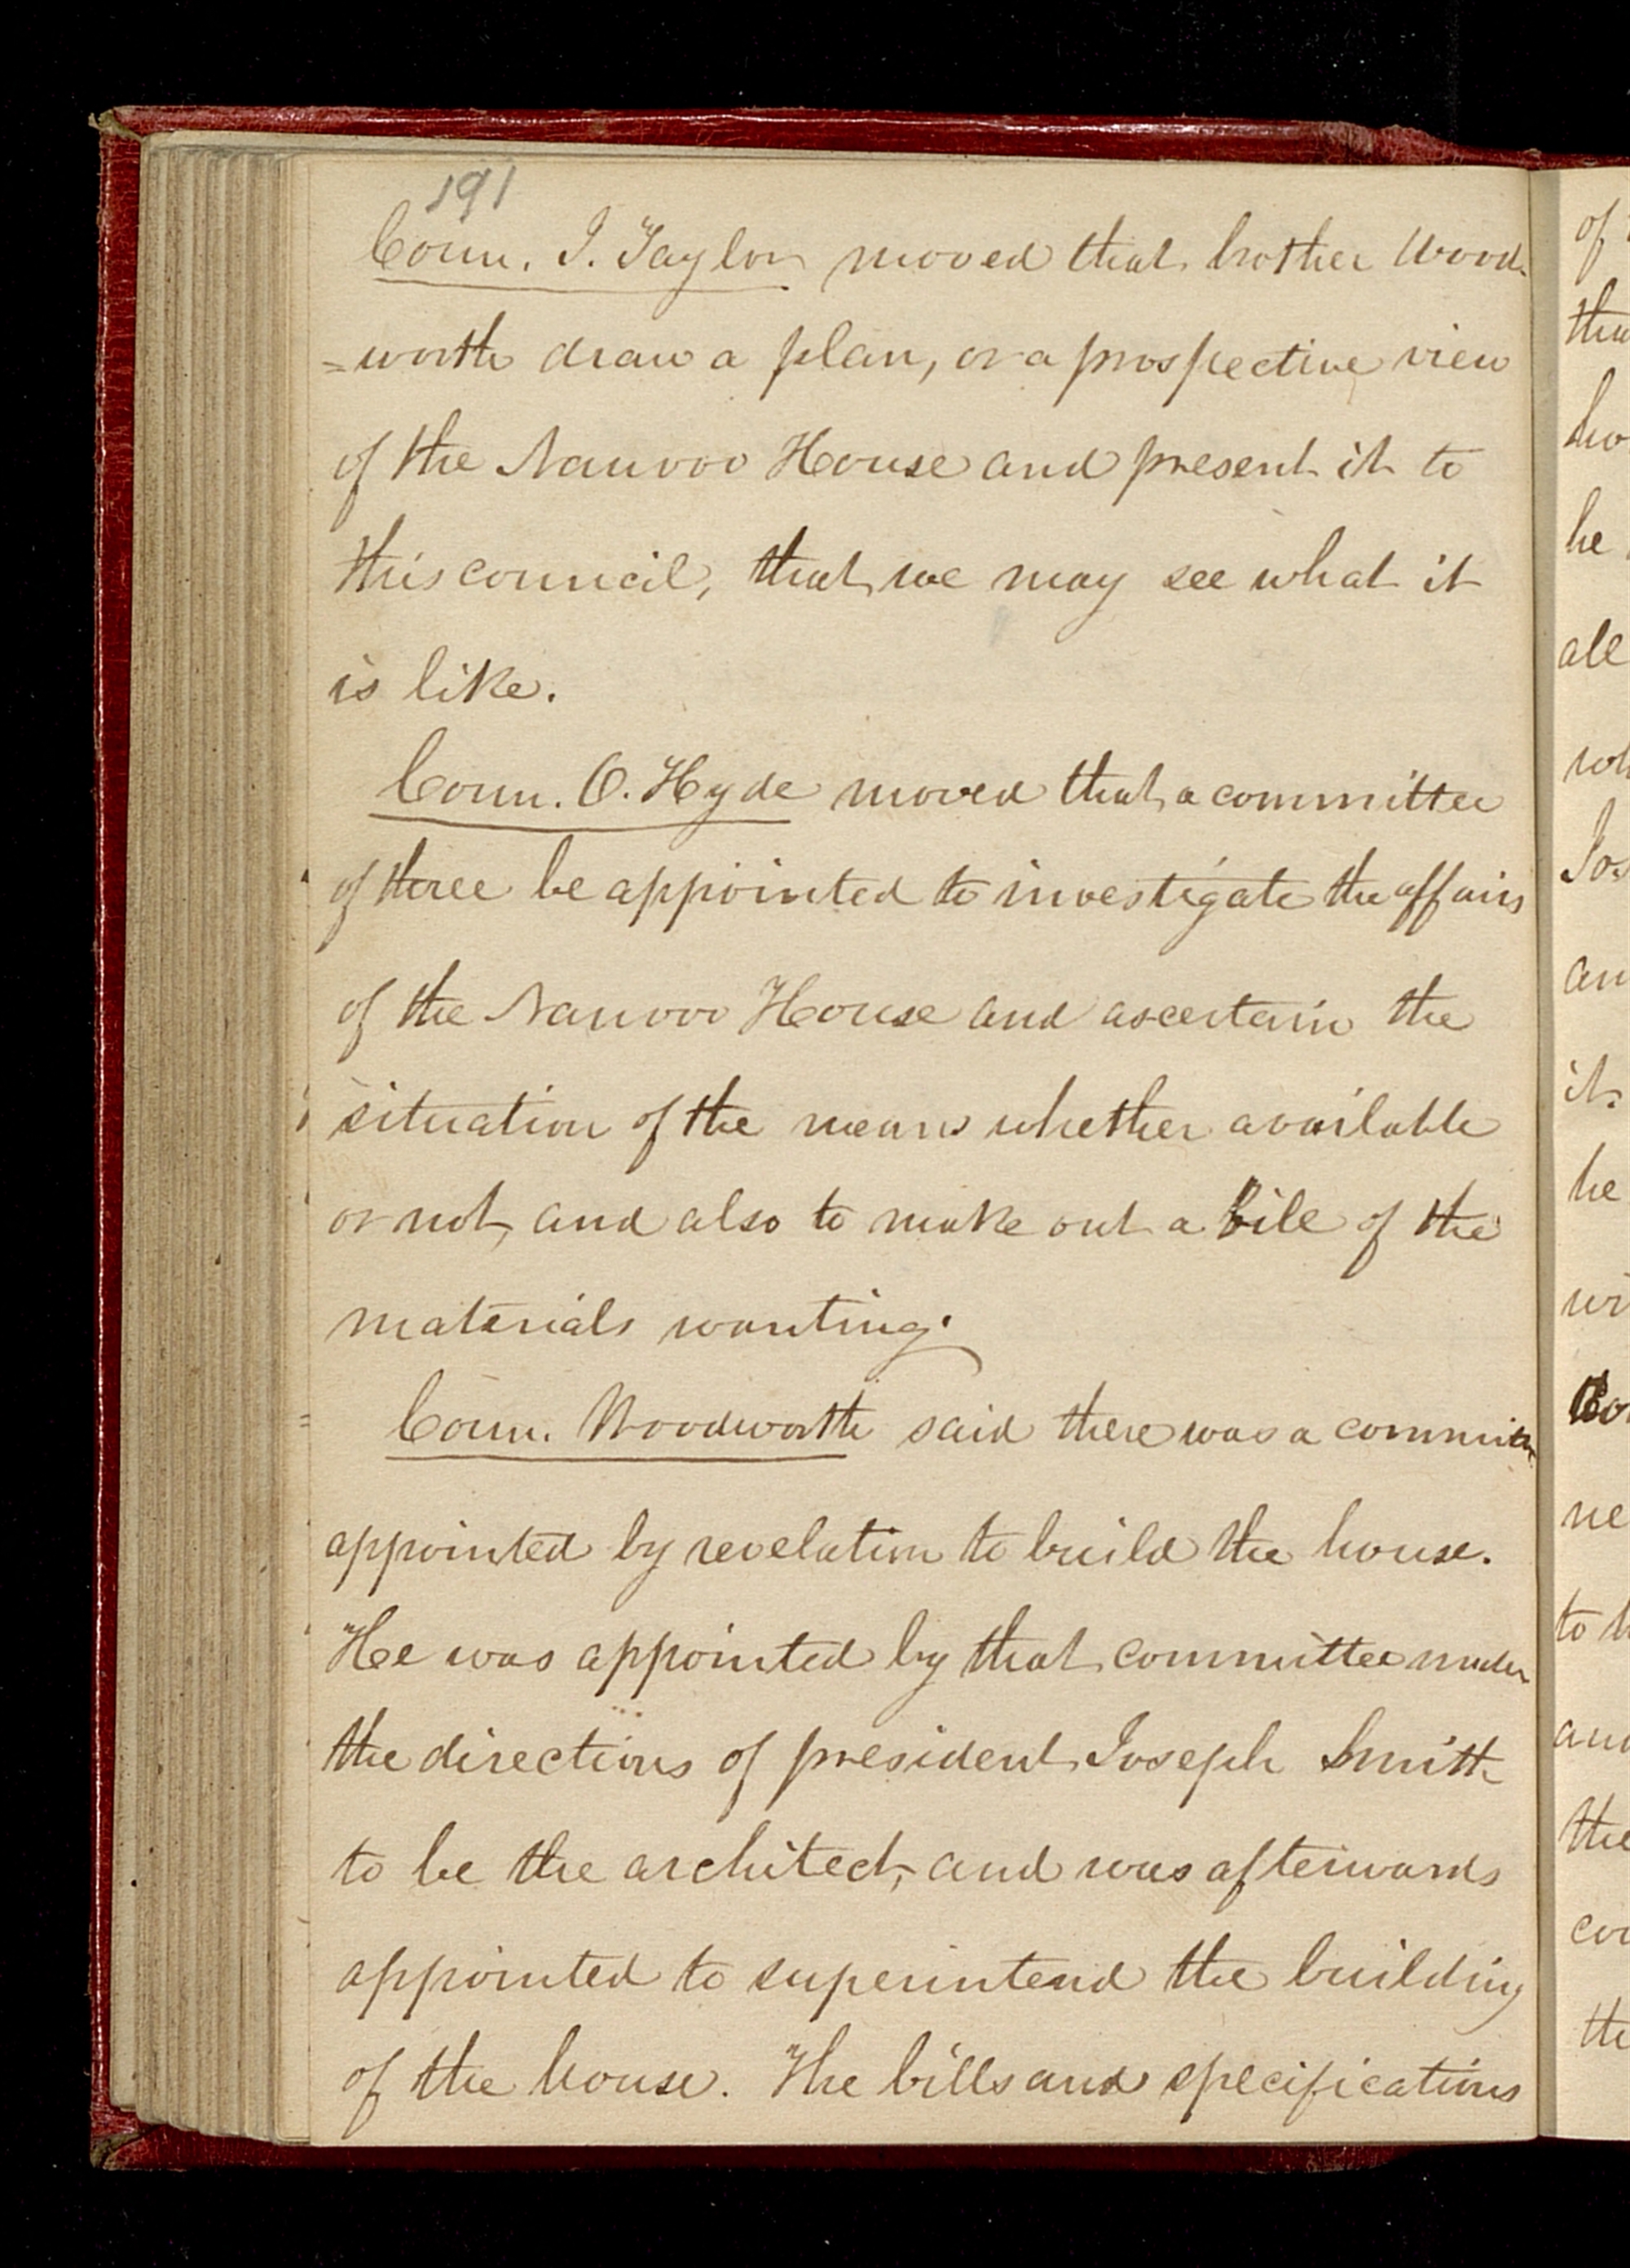 191
Coun. J. Taylor moved that brother Wood-
=worth draw a plan, or a prospective view
of the Nauvoo House and present it to
this council, that we may see what it
is like.
Coun. O. Hyde moved that a committee
of three be appointed to investigate the affairs
of the Nauvoo House and ascertain the
situation of the means whether available
or not, and also to make out a bill of the
materials wanting.
Coun. Woodworth said there was a committee
appointed by revelation to build the house.
He was appointed by that committee under
the directions of president Joseph Smith
to be the architect, and was afterwards
appointed to superintend the building
of the house. The bills and specifications
of
he
an
it.
he
ne
to
the